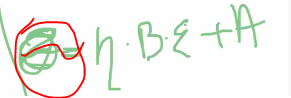 = η · B · ε + A